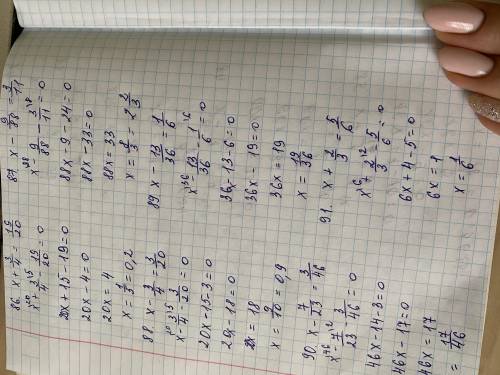 86. x + 3/4 = 19/20
x²⁰ + 3/4⁵ - 19/20 = 0
20x + 15 - 19 = 0
20x - 4 = 0
20x = 4
x = 1/5 = 0,2
88. x - 3/4 = 3/20
x²⁰ - 3/4⁵ - 3/20 = 0
20x - 15 - 3 = 0
20x - 18 = 0
20x = 18
x = 9/10 = 0,9
90. x - 7/23 = 3/46
x⁴⁶ - 7/23² - 3/46 = 0
46x - 14 - 3 = 0
46x - 17 = 0
46x = 17
= 17/46
87. x - 9/88 = 3/11
x⁸⁸ - 9/88 - 3/11⁸ = 0
88x - 9 - 24 = 0
88x - 33 = 0
88x = 33
x = 8/3 = 2 2/3
89. x - 13/36 = 1/6
x³⁶ - 13/36 - 1/6⁶ = 0
36x - 13 - 6 = 0
36x - 19 = 0
36x = 19
x = 19/36
91. x + 2/3 = 5/6
x⁶ + 2/3² - 5/6 = 0
6x + 4 - 5 = 0
6x = 1
x = 1/6